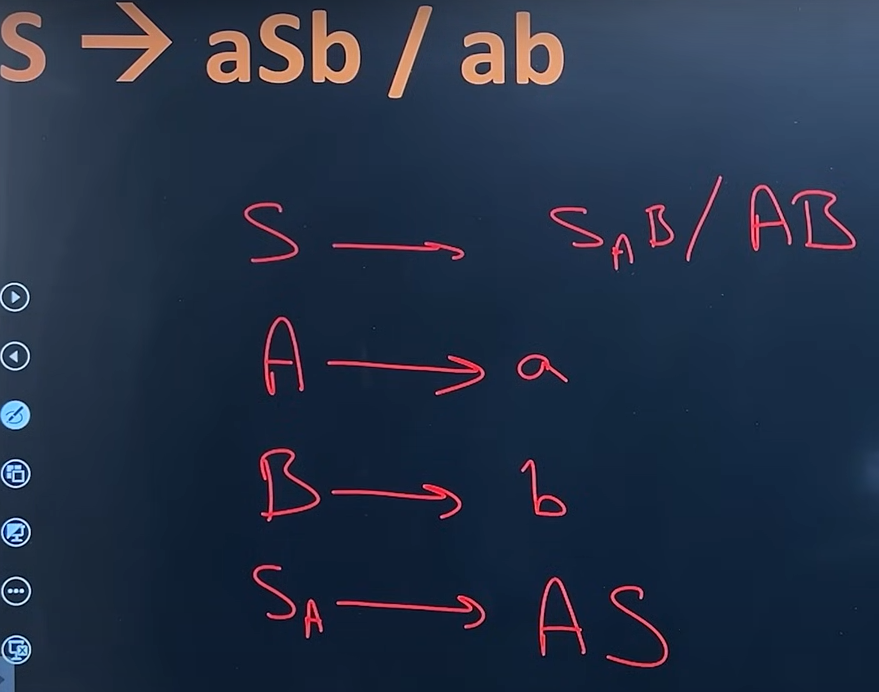 S → aSb / ab
S → S_A B / AB
A → a
B → b
S_A → AS